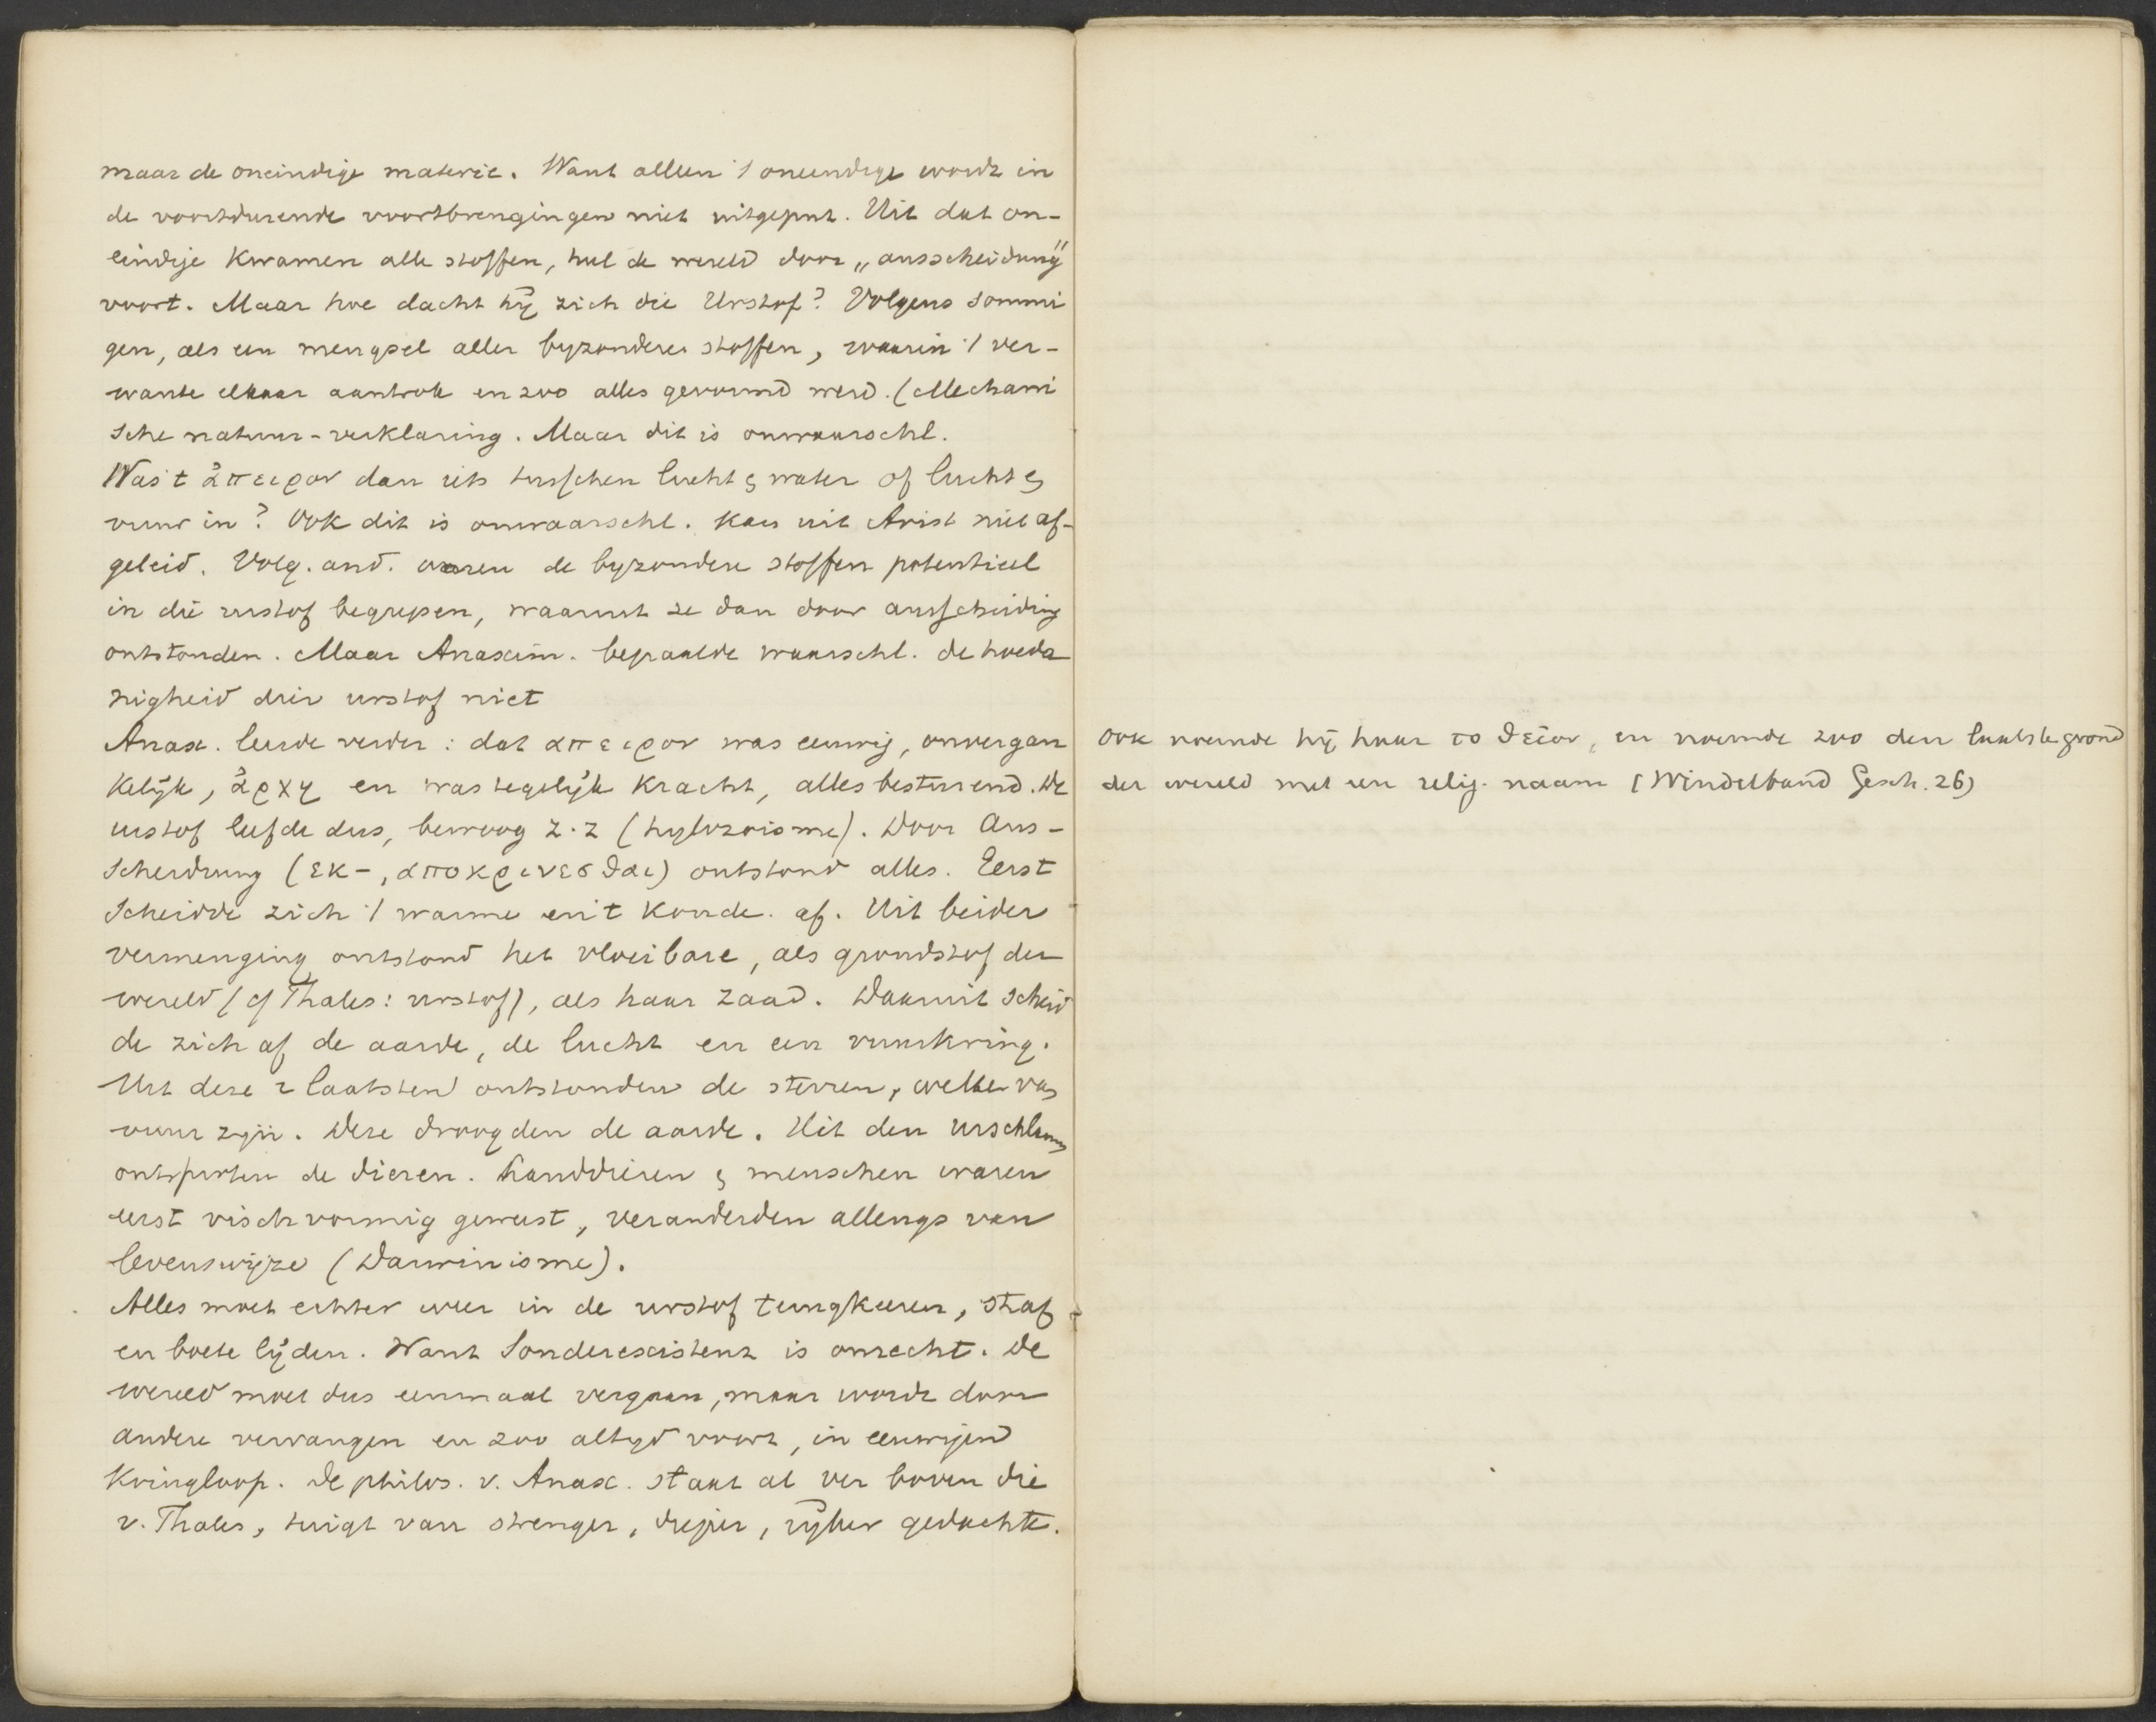 maar de oneindige materie. Want alleen 't oneindige wordt in
de voortdurende voortbrengingen niet uitgeput. Uit dat on-
eindige kwamen alle stoffen, heel de wereld door „ausscheidung"
voort. Maar hoe dacht hij zich die Urstof? Volgens sommi
gen, als een mengsel aller byzondere stoffen, waarin 't ver-
wante elkaar aantrok en zoo alles gevormd werd. (Mechani
sche natuur-verklaring. Maar dit is onwaarschl.
Was 't ἄπειρον dan iets tusschen lucht & water of lucht &
vuur in? Ook dit is onwaarschl. Kan uit Arist niet af-
geleid. Volg. and. waren de byzondere stoffen potentieel
in die urstof begrepen, waaruit ze dan door ausscheiding
ontstonden. Maar Anaxim. bepaalde waarschl. de hoeda
nigheid dier urstof niet
Anax. leerde verder: dat απειρον was eeuwig, onvergan
kelijk, ἀρχη en was tegelijk kracht, alles besturend. De
urstof leefde dus, bewoog z.z (hylozoisme). Door Aus-
scheidung (εκ-, αποκρινεσθαι) ontstond alles. Eerst
scheidde zich 't warme en 't koude. af. Uit beider
vermenging ontstond het vloeibare, als grondstof der
wereld (cf Thales: urstof), als haar zaad. Daaruit scheid
de zich af de aarde, de lucht en een vuurkring.
Uit deze 2 laatsten ontstonden de sterren, welke van
vuur zijn. Deze droogden de aarde. Uit den urschlamm
ontsproten de dieren. Landdieren & menschen waren
eerst vischvormig geweest, veranderden allengs van
levenswijze (Darwinisme).
Alles moet echter weer in de urstof terugkeeren, straf
en boete lijden. Want Sonderexistenz is onrecht. De
wereld moet dus eenmaal vergaan, maar wordt door
andere vervangen en zoo altyd voort, in eeuwigen
Kringloop. De philos. v. Anax. staat al ver boven die
v. Thales, tuigt van strenger, dieper, rijker gedachte.
Ook noemde hij haar το θεῖον, en noemde zoo den laatste grond
der wereld met een relig. naam (Windelband Gesch. 26)